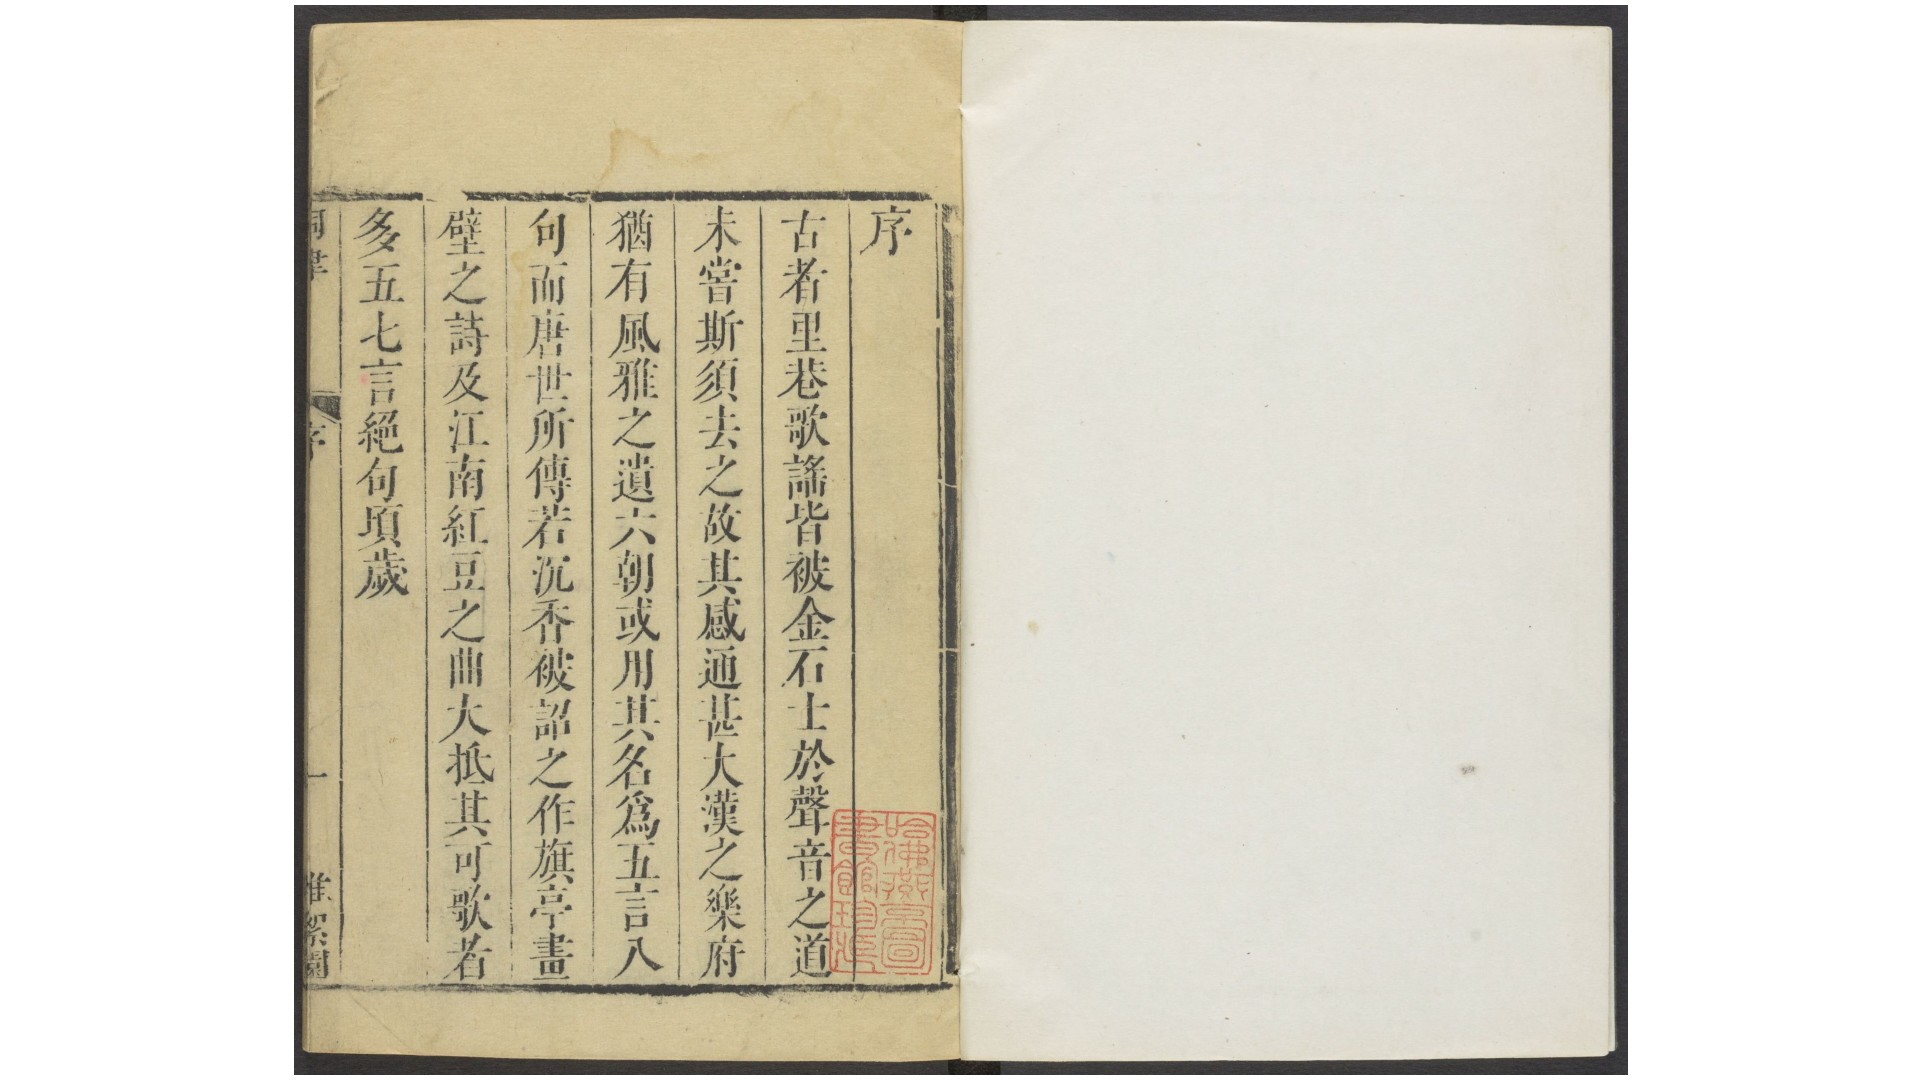 序
古者里巷歌謠皆被金石士於聲音之道
未嘗斯須去之故其感通甚大漢之樂府
猶有風雅之遺六朝或用其名爲五言八
句而唐世所傳若沉香被詔之作旗亭畫
壁之詩及江南紅豆之曲大抵其可歌者
多五七言絕句項歲
序
一
哈佛燕京圖書館珍藏